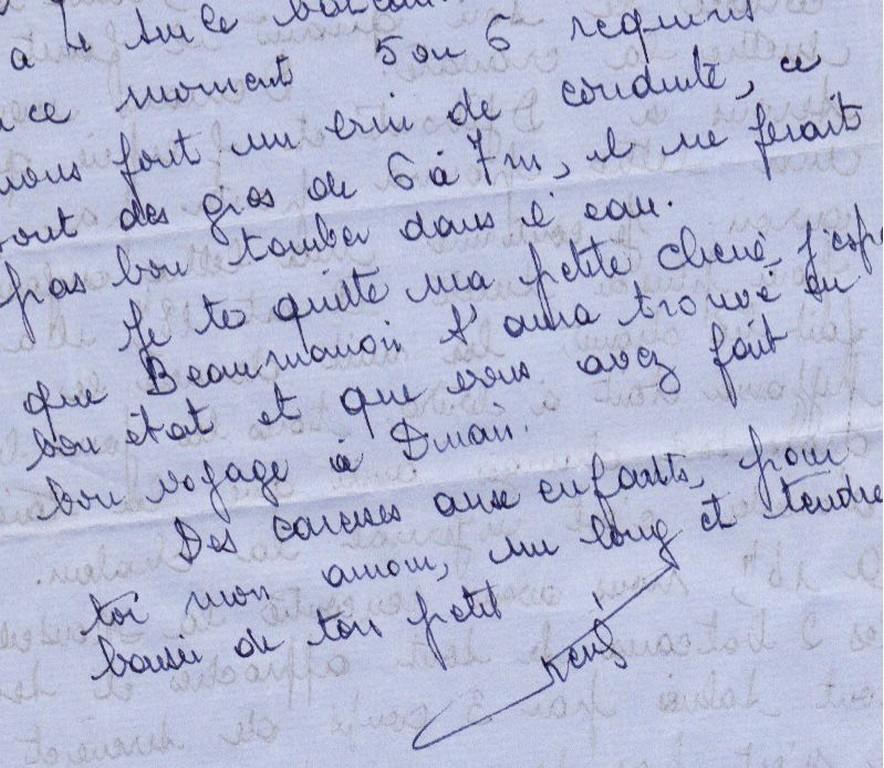 a
ce moment 5 ou 6 requins
nous font un brin de conduite, ce
sont des gros de 6 à 7 m, il ne ferait
pas bon tomber dans l'eau.
Je te quitte ma petite chérie, j'espè
que Beaumanoir t'aura trouvé en
bon état et que vous avez fait
bon voyage à Dinan.
Des caresses aux enfants, pour
toi mon amour, un long et tendre
baiser de ton petit
René